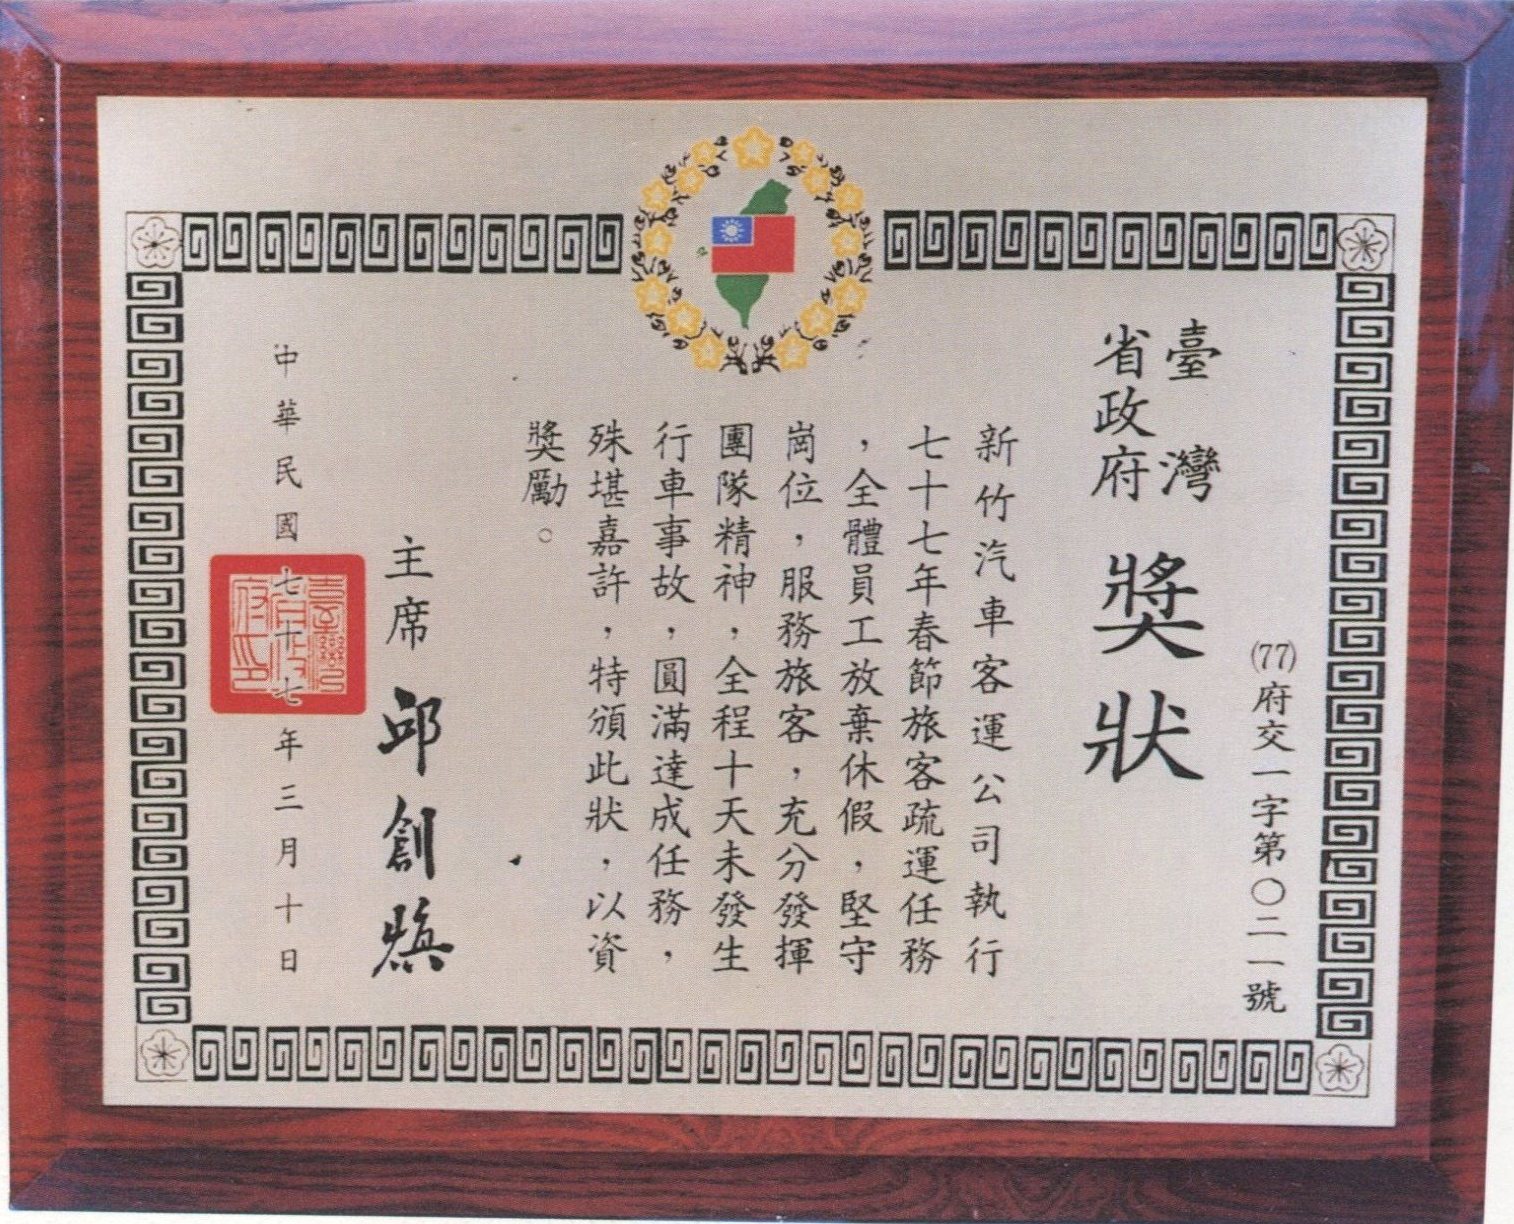 (77)府交一字第〇二一號
臺灣
省政府
獎狀
新竹汽車客運公司執行
七十七年春節旅客疏運任務
，全體員工放棄休假，堅守
崗位，服務旅客，充分發揮
團隊精神，全程十天未發生
行車事故，圓滿達成任務，
殊堪嘉許，特頒此狀，以資
獎勵。
主席 邱創煥
中華民國七十七年三月十日
臺灣省政府印